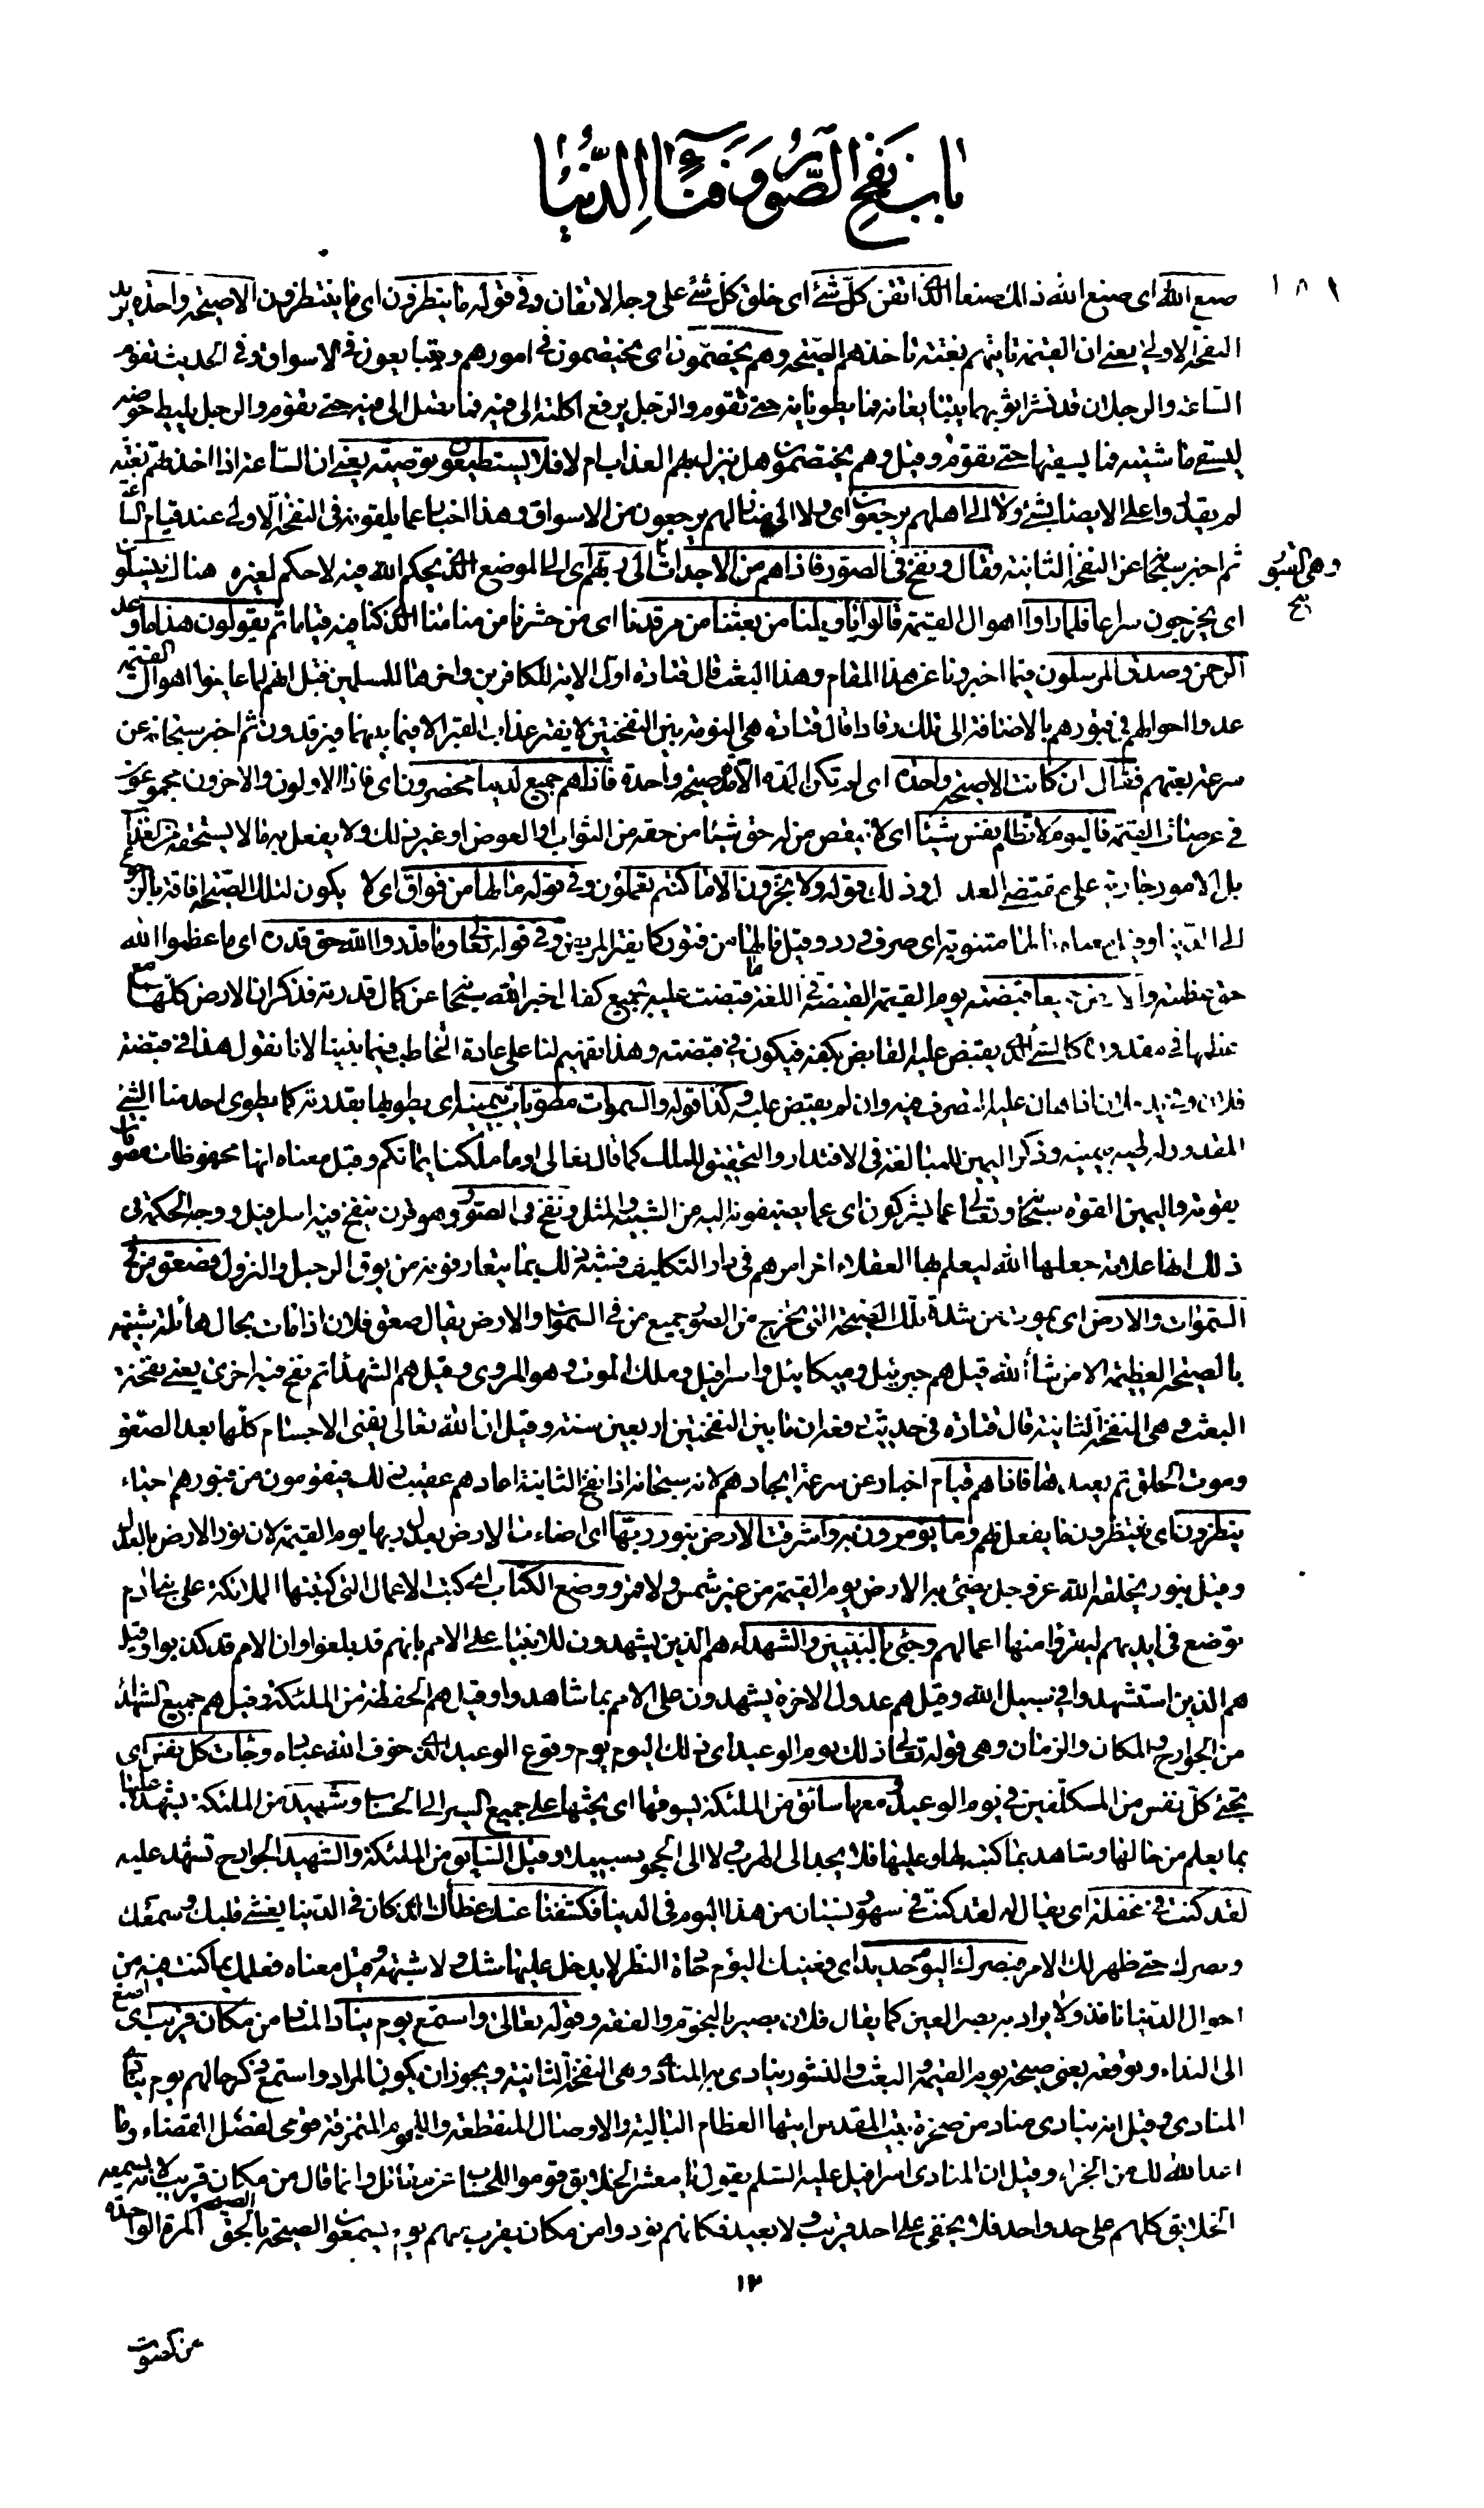 باب نفخ الصور وفناء الدنيا
١٨١
صنع الله اى صنع الله ذلك صنعا الذى اتقن كل شئ اى خلق كل شئ على وجه الاتقان وفى قوله ما ينظرون اى ما ينتظرون الا صيحة واحدة يريد
النفخة الاولى يعنى ان القيمة تاتيهم بغتة تاخذهم الصيحة وهم يخصمون اى يختصمون فى امورهم ويتبايعون فى الاسواق وفى الحديث تقوم
الساعة والرجلان قد نشرا ثوبهما يتبايعانه فما يطويانه حتى تقوم والرجل يرفع اكلته الى فيه فما تصل الى فيه حتى تقوم والرجل يليط حوضه
ليسقى ماشيته فما يسقيها حتى تقوم وقيل وهم يختصمون هل ينزل بهم العذاب ام لا فلا يستطيعون توصية يعنى ان الساعة اذا اخذتهم بغتة
لم يقدروا على الايصاء بشئ ولا الى اهلهم يرجعون اى ولا الى منازلهم يرجعون من الاسواق وهذا اخبار عما يلقونه فى النفخة الاولى عند قيام الساعة
ثم اخبر سبحانه عن النفخة الثانية فقال ونفخ فى الصور فاذا هم من الاجداث الى ربهم اى الى الموضع الذى يحكم الله فيه لا حكم لغيره هنالك ينسلون
وهى القبور
صح
اى يخرجون سراعا فلما راوا اهوال القيمة قالوا يا ويلنا من بعثنا من مرقدنا اى من حشرنا من منامنا الذى كنا فيه نياما ثم يقولون هذا ما وعد
الرحمن وصدق المرسلون فيما اخبرونا عن هذا المقام وهذا البعث قال قتادة اول الاية للكافرين واخرها للمسلمين قيل انهم لما عاينوا اهوال القيمة
عدوا احوالهم فى قبورهم بالاضافة الى تلك رقادا قال قتادة هى النومة بين النفختين لا يفتر عذاب القبر الا فيما بينهما فيرقدون ثم اخبر سبحانه عن
سرعة بعثهم فقال ان كانت الا صيحة واحدة اى لم تكن المدة الا مدة صيحة واحدة فاذا هم جميع لدينا محضرون اى فاذا الاولون والاخرون مجموعون
فى عرصات القيمة فاليوم لا تظلم نفس شيئا اى لا ينقص من له حق شيئا من حقه من الثواب او العوض او غير ذلك ولا يفعل به ما لا يستحقه من العذاب
بل الامور جارية على مقتضى العدل وذلك قوله ولا تجزون الا ما كنتم تعملون وفى قوله ما لها من فواق اى لا يكون لتلك الصيحة افاقة بالرجوع
الى الدنيا مثنوية اى صرف ورد وقيل ما لها من فتور كما يفتر المريض وفى قوله تعالى وما قدروا الله حق قدره اى ما عظموا الله
حق عظمته والارض جميعا قبضته يوم القيمة القبضة فى اللغة ما قبضت عليه بجميع كفك اخبر الله سبحانه عن كمال قدرته فذكر ان الارض كلها مع
عظمها فى مقدوره كالشئ الذى يقبض عليه القابض بكفه فيكون فى قبضته وهذا تفهيم لنا على عادة التخاطب فيما بيننا لانا نقول هذا فى قبضة
فلان وفى يد فلان اذا هان عليه التصرف فيه وان لم يقبض عليه وكذا قوله والسموات مطويات بيمينه اى يطويها بقدرته كما يطوى احدنا الشئ
المقدور له طيه بيمينه وذكر اليمين للمبالغة فى الاقتدار والتحقيق للملك كما قال تعالى او ما ملكت ايمانكم وقيل معناه انها محفوظات مصونات
بقوته واليمين القوة سبحانه وتعالى عما يشركون اى عما يضيفونه اليه من الشبيه والمثل ونفخ فى الصور وهو قرن ينفخ فيه اسرافيل ووجه الحكمة فى
ذلك انها علامة جعلها الله ليعلم بها العقلاء اخر امرهم فى دار التكليف فشبه ذلك بما يتعارفونه من بوق الرحيل والنزول فصعق من فى
السموات والارض اى يموت من شدة تلك الصيحة التى تخرج من الصور جميع من فى السموات والارض يقال صعق فلان اذا مات بحال هائلة شبيهة
بالصيحة العظيمة الا من شاء الله قيل هم جبرئيل وميكائيل واسرافيل وملك الموت وهو المروى وقيل هم الشهداء ثم نفخ فيه اخرى يعنى نفخة
البعث وهى النفخة الثانية قال قتادة فى حديث رفعه ان ما بين النفختين اربعين سنة وقيل ان الله تعالى يفنى الاجسام كلها بعد الصعق
وموت الخلق ثم يعيدها فاذا هم قيام اخبار عن سرعة ايجادهم لانه سبحانه اذا نفخ الثانية اعادهم عقيب ذلك فيقومون من قبورهم احياء
ينظرون اى ينتظرون ما يفعل بهم وما يؤمرون به واشرقت الارض بنور ربها اى اضاءت الارض بعدل ربها يوم القيمة لان نور الارض بالعدل
وقيل بنور يخلقه الله عز وجل يضئ به الارض يوم القيمة من غير شمس ولا قمر ووضع الكتاب اى كتب الاعمال التى كتبتها الملائكة على بنى ادم
توضع فى ايديهم ليقرؤا منها اعمالهم وجئ بالنبيين والشهداء هم الذين يشهدون للانبياء على الامم بانهم قد بلغوا وان الامم قد كذبوا وقيل
هم الذين استشهدوا فى سبيل الله وقيل هم عدول الاخرة يشهدون على الامم بما شاهدوا وقيل هم الحفظة من الملئكة وقيل هم جميع الشهداء
من الجوارح والمكان والزمان وهى قوله تعالى ذلك يوم الوعيد اى ذلك اليوم يوم وقوع الوعيد الذى خوف الله عباده وجاءت كل نفس اى
تجئ كل نفس من المكلفين فى يوم الوعيد ومعها سائق من الملئكة يسوقها اى يحثها على جميع السير الى الحساب وشهيد من الملئكة يشهد عليها
بما يعلم من حالها وشاهد بما كتبه لها وعليها فلا يجد الى الهرب ولا الى الجحود سبيلا وقيل السايق من الملئكة والشهيد الجوارح تشهد عليه
لقد كنت فى غفلة اى يقال له لقد كنت فى سهو ونسيان من هذا اليوم فى الدنيا فكشفنا عنك غطاءك الذى كان فى الدنيا يغشى قلبك وسمعك
وبصرك حتى ظهر لك الامر فبصرك اليوم حديد اى فعينك اليوم حادة النظر لا يدخل عليها شك ولا شبهة وقيل معناه فعلمك بما كنت فيه من
احوال الدنيا نافذ ولا يراد به بصر العين كما يقال فلان بصير بالنجوم والفقه وقوله تعالى واستمع يوم يناد المناد من مكان قريب اى اصغ
الى النداء وتوقعه يعنى صيحة يوم القيمة والبعث والنشور ينادى به المنادى وهى النفخة الثانية ويجوز ان يكون المراد واستمع ذكر حالهم يوم ينادى
المنادى وقيل انه ينادى مناد من صخرة بيت المقدس ايتها العظام البالية والاوصال المنقطعة واللحوم المتمزقة قومى لفصل القضاء وما
اعد الله لك من الجزاء وقيل ان المنادى اسرافيل عليه السلم يقول يا معشر الخلايق قوموا للحساب عن مقاتل وانما قال من مكان قريب لانه يسمعه
الخلايق كلهم على حد واحد فلا يخفى على احد قريب ولا بعيد فكانهم نودوا من مكان يقرب منهم يوم يسمعون الصيحة بالحق الصيحة المرة الواحدة
١٢
من لصوت